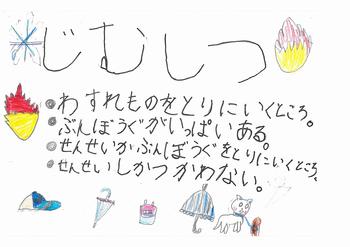 じむしつ
●わすれものをとりにいくところ。
●ぶんぼうぐがいっぱいある。
●せんせいがぶんぼうぐをとりにいくところ。
●せんせいしかつかわない。